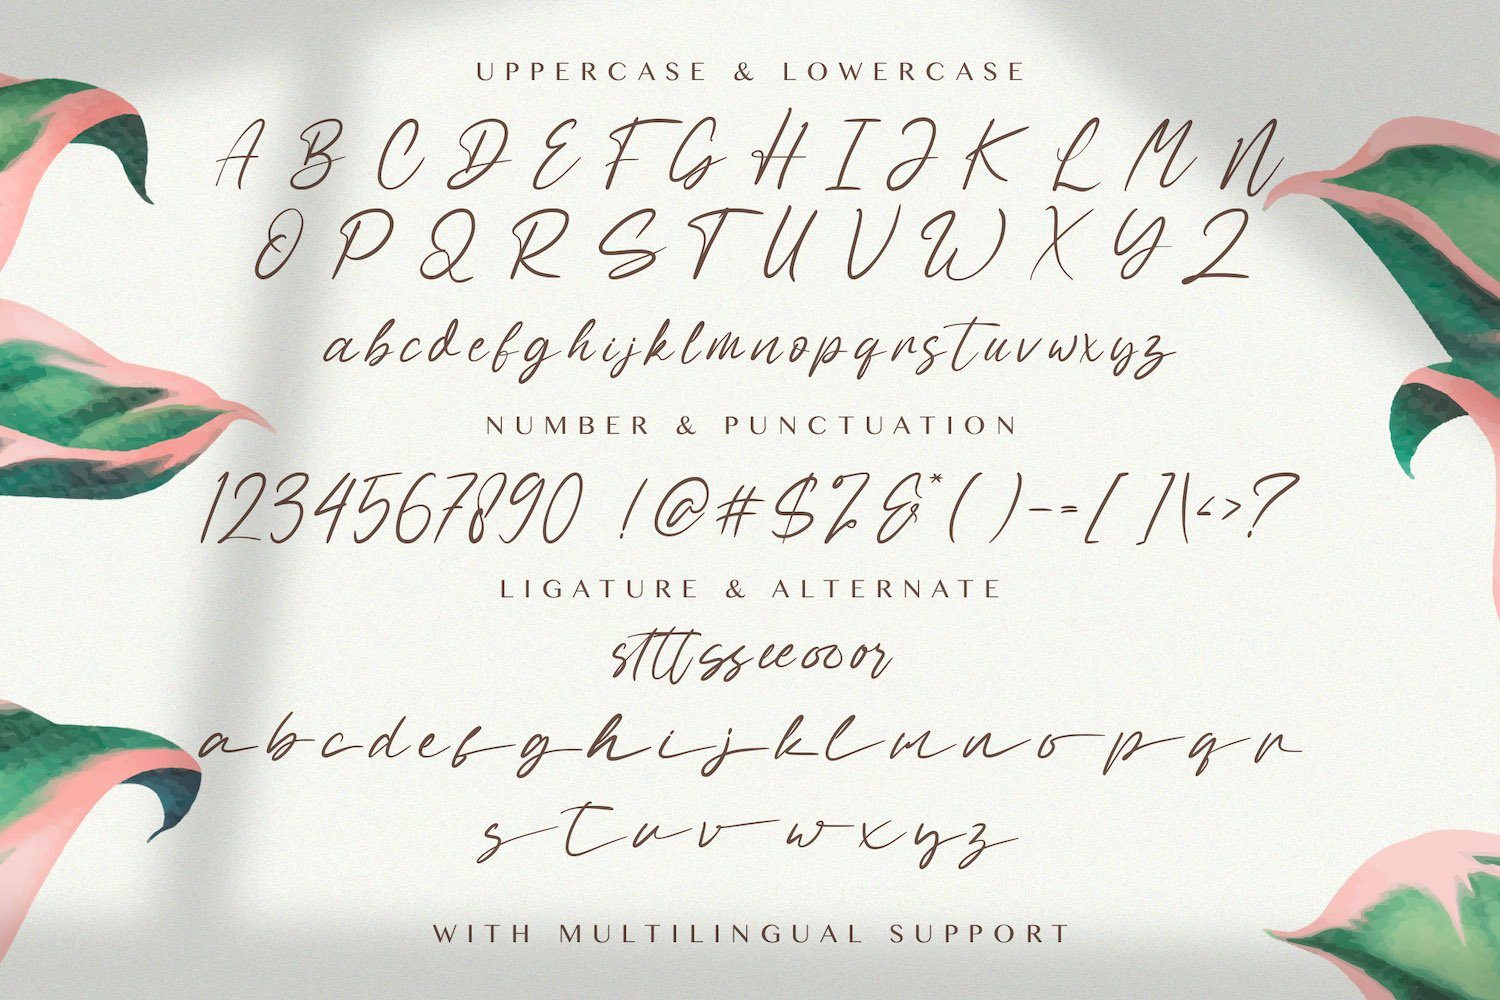 UPPERCASE & LOWERCASE
A B C D E F G H I J K L M N
O P Q R S T U V W X Y Z
abcdefghijklmnopqrstuvwxyz
NUMBER & PUNCTUATION
1234567890 !@#$%&*( )-=[ ]\<>?
LIGATURE & ALTERNATE
stttssseeooor
abcdefghijklmnopqr
stuvwxyz
WITH MULTILINGUAL SUPPORT